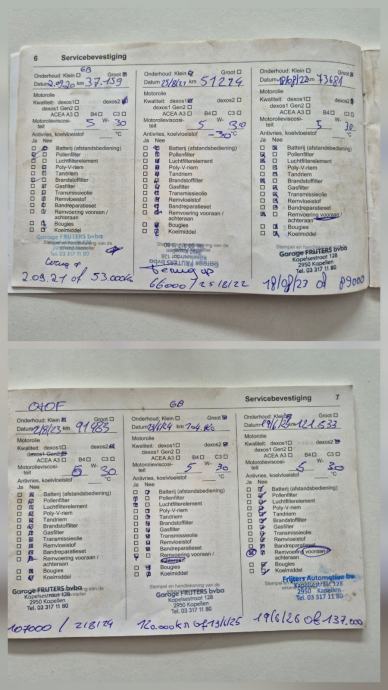 6 Servicebevestiging
GB
Onderhoud: Klein Groot
Datum 2.09.20 km 37.159
Motorolie
Kwaliteit: dexos1 dexos2
dexos1 Gen2
ACEA A3 B4 C3
Motorolieviscositeit 5 W- 30
Antivries, koelvloeistof °C
Ja Nee
Batterij (afstandsbediening)
Pollenfilter
Luchtfilterelement
Poly-V-riem
Tandriem
Brandstoffilter
Gasfilter
Transmissieolie
Remvloeistof
Bandreparatieset
Remvoering vooraan / achteraan
Bougies
Koelmiddel
Garage FRIJTERS bvba
2950 Kapellen
Tel. 03 317 11 80
terug op
2.09.21 of 53.000km
Onderhoud: Klein Groot
Datum 25/8/21 km 51274
Motorolie
Kwaliteit: dexos1 dexos2
dexos1 Gen2
ACEA A3 B4 C3
Motorolieviscositeit 5 W- 30
Antivries, koelvloeistof -30 °C
Ja Nee
Batterij (afstandsbediening)
Pollenfilter
Luchtfilterelement
Poly-V-riem
Tandriem
Brandstoffilter
Gasfilter
Transmissieolie
Remvloeistof
Bandreparatieset
Remvoering vooraan / achteraan
Bougies
Koelmiddel
Garage FRIJTERS bvba
terug op
66000 / 25/8/22
Onderhoud: Klein Groot
Datum 18/08/22 km 73681
Motorolie
Kwaliteit: dexos1 dexos2
dexos1 Gen2
ACEA A3 B4 C3
Motorolieviscositeit 5 W- 30
Antivries, koelvloeistof °C
Ja Nee
Batterij (afstandsbediening)
Pollenfilter
Luchtfilterelement
Poly-V-riem
Tandriem
Brandstoffilter
Gasfilter
Transmissieolie
Remvloeistof
Bandreparatieset
Remvoering vooraan / achteraan
Bougies
Koelmiddel
Garage FRIJTERS bvba
Kapelsestraat 128
2950 Kapellen
Tel. 03 317 11 80
18/08/23 of 89000
Servicebevestiging 7
Onderhoud: Klein Groot
Datum 2/8/23 km 91485
Motorolie
Kwaliteit: dexos1 dexos2
dexos1 Gen2
ACEA A3 B4 C3
Motorolieviscositeit 5 W- 30
Antivries, koelvloeistof °C
Ja Nee
Batterij (afstandsbediening)
Pollenfilter
Luchtfilterelement
Poly-V-riem
Tandriem
Brandstoffilter
Gasfilter
Transmissieolie
Remvloeistof
Bandreparatieset
Remvoering vooraan / achteraan
Bougies
Koelmiddel
Garage FRIJTERS bvba
Kapelsestraat 128
2950 Kapellen
Tel. 03 317 11 80
107000 / 2/8/24
GB
Onderhoud: Klein Groot
Datum km
Motorolie
Kwaliteit: dexos1 dexos2
dexos1 Gen2
ACEA A3 B4 C3
Motorolieviscositeit 5 W- 30
Antivries, koelvloeistof °C
Ja Nee
Batterij (afstandsbediening)
Pollenfilter
Luchtfilterelement
Poly-V-riem
Tandriem
Brandstoffilter
Gasfilter
Transmissieolie
Remvloeistof
Bandreparatieset
Remvoering vooraan /
Bougies
Koelmiddel
Stempel en handtekening van de
Garage FRIJTERS bvba
Kapelsestraat 128
2950 Kapellen
Tel. 03 317 11 80
120.000km of 13/6/25
Onderhoud: Klein Groot
Datum 19/6/25 km 121.533
Motorolie
Kwaliteit: dexos1 dexos2
dexos1 Gen2
ACEA A3 B4 C3
Motorolieviscositeit 5 W- 30
Antivries, koelvloeistof °C
Ja Nee
Batterij (afstandsbediening)
Pollenfilter
Luchtfilterelement
Poly-V-riem
Tandriem
Brandstoffilter
Gasfilter
Transmissieolie
Remvloeistof
Bandreparatieset
Remvoering vooraan / achteraan
Bougies
Koelmiddel
Frijters Automotive bv
Kapelsestraat 128
2950 Kapellen
Tel. 03 317 11 80
19/6/26 of 137.000